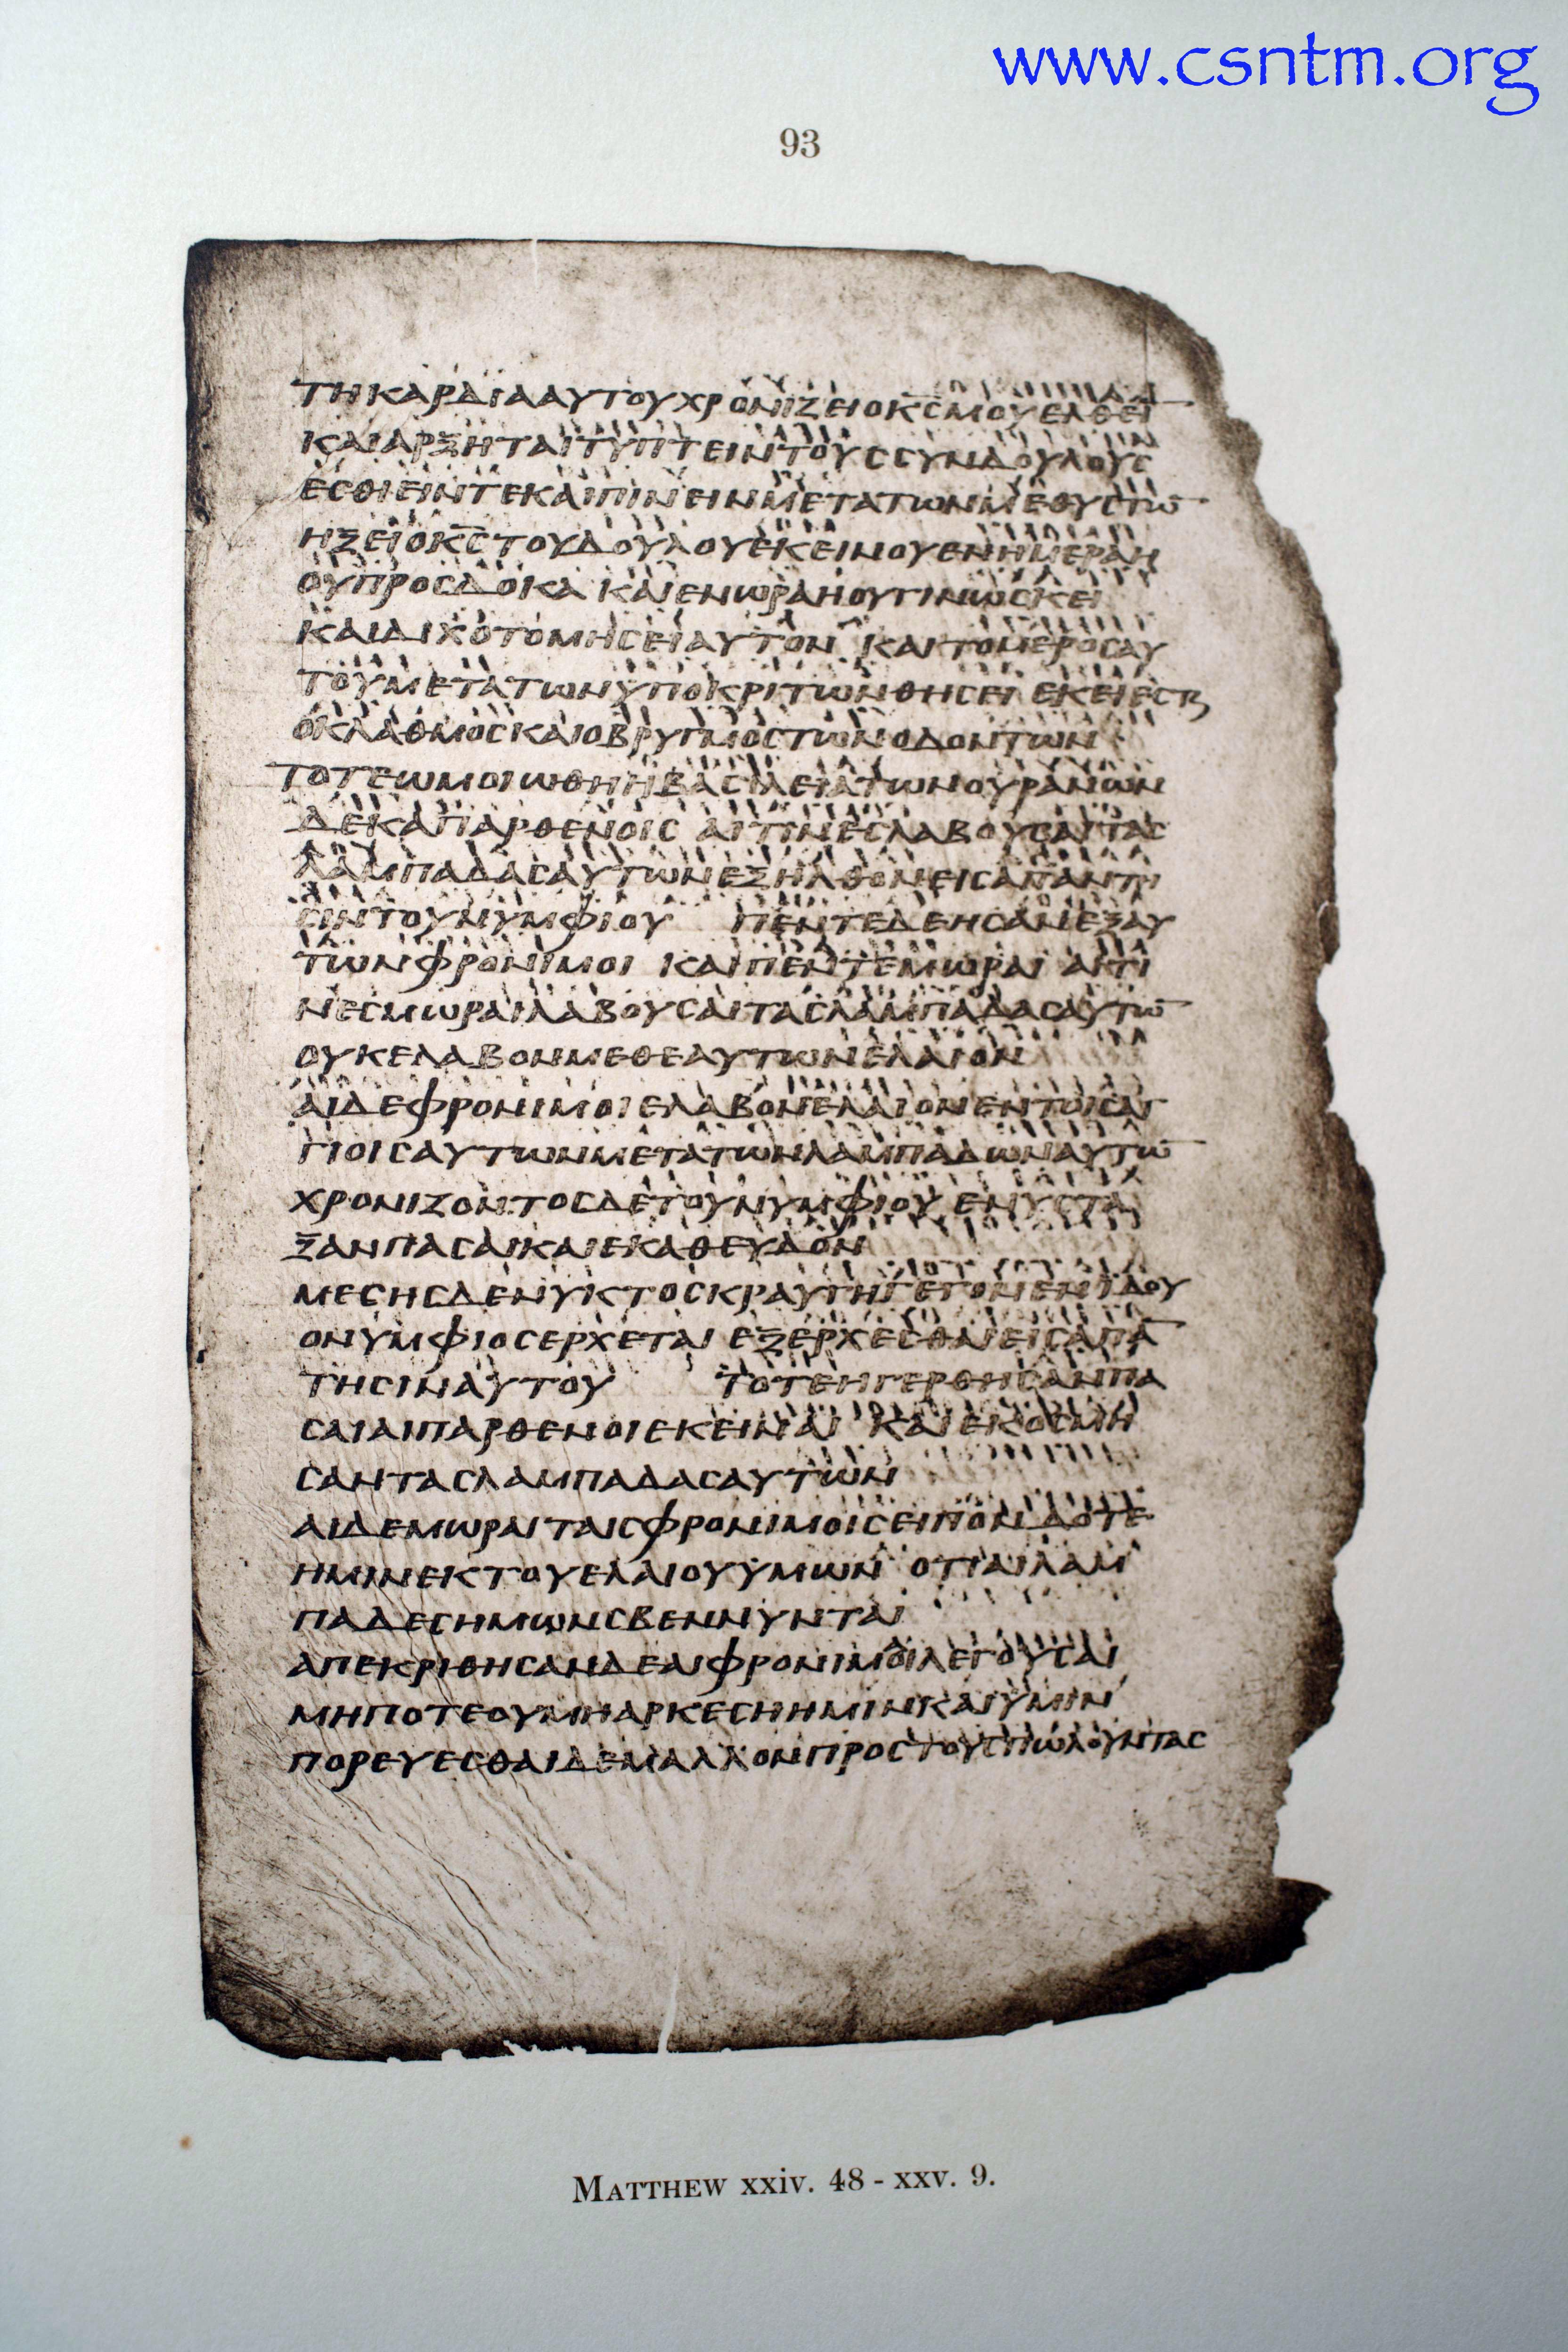 www.csntm.org
93
ΤΗΚΑΡΔΙΑΑΥΤΟΥΧΡΟΝΙΖΕΙΟΚ̅Ϲ̅ΜΟΥΕΛΘΕΙ̅
ΚΑΙΑΡΞΗΤΑΙΤΥΠΤΕΙΝΤΟΥϹϹΥΝΔΟΥΛΟΥϹ
ΕϹΘΙΕΙΝΤΕΚΑΙΠΙΝΕΙΝΜΕΤΑΤΩΝΜΕΘΥϹΤΩ̅
ΗΞΕΙΟΚ̅Ϲ̅ΤΟΥΔΟΥΛΟΥΕΚΕΙΝΟΥΕΝΗΜΕΡΑΗ
ΟΥΠΡΟϹΔΟΚΑ ΚΑΙΕΝΩΡΑΗΟΥΓΙΝΩϹΚΕΙ
ΚΑΙΔΙΧΟΤΟΜΗϹΕΙΑΥΤΟΝ ΚΑΙΤΟΜΕΡΟϹΑΥ
ΤΟΥΜΕΤΑΤΩΝΫΠΟΚΡΙΤΩΝΘΗϹΕΙ ΕΚΕΙΕϹΤΑΙ
ΟΚΛΑΘΜΟϹΚΑΙΟΒΡΥΓΜΟϹΤΩΝΟΔΟΝΤΩΝ
ΤΟΤΕΩΜΟΙΩΘΗΗΒΑϹΙΛΕΙΑΤΩΝΟΥΡΑΝΩΝ
ΔΕΚΑΠΑΡΘΕΝΟΙϹ ΑΙΤΙΝΕϹΛΑΒΟΥϹΑΙΤΑϹ
ΛΑΜΠΑΔΑϹΑΥΤΩΝΕΞΗΛΘΟΝΕΙϹΑΠΑΝΤΗ
ϹΙΝΤΟΥΝΥΜΦΙΟΥ ΠΕΝΤΕΔΕΗϹΑΝΕΞΑΥ
ΤΩΝΦΡΟΝΙΜΟΙ ΚΑΙΠΕΝΤΕΜΩΡΑΙ ΑΙΤΙ
ΝΕϹΜΩΡΑΙΛΑΒΟΥϹΑΙΤΑϹΛΑΜΠΑΔΑϹΑΥΤΩ̅
ΟΥΚΕΛΑΒΟΝΜΕΘΕΑΥΤΩΝΕΛΑΙΟΝ
ΑΙΔΕΦΡΟΝΙΜΟΙΕΛΑΒΟΝΕΛΑΙΟΝΕΝΤΟΙϹΑΓ
ΓΙΟΙϹΑΥΤΩΝΜΕΤΑΤΩΝΛΑΜΠΑΔΩΝΑΥΤΩ̅
ΧΡΟΝΙΖΟΝΤΟϹΔΕΤΟΥΝΥΜΦΙΟΥ ΕΝΥϹΤΑ
ΞΑΝΠΑϹΑΙΚΑΙΕΚΑΘΕΥΔΟΝ
ΜΕϹΗϹΔΕΝΥΚΤΟϹΚΡΑΥΓΗΓΕΓΟΝΕΝΪΔΟΥ
ΟΝΥΜΦΙΟϹΕΡΧΕΤΑΙ ΕΞΕΡΧΕϹΘΑΙΕΙϹΑΠΑ̅
ΤΗϹΙΝΑΥΤΟΥ ΤΟΤΕΗΓΕΡΘΗϹΑΝΠΑ
ϹΑΙΑΙΠΑΡΘΕΝΟΙΕΚΕΙΝΑΙ ΚΑΙΕΚΟϹΜΗ
ϹΑΝΤΑϹΛΑΜΠΑΔΑϹΑΥΤΩΝ
ΑΙΔΕΜΩΡΑΙΤΑΙϹΦΡΟΝΙΜΟΙϹΕΙΠΟΝ ΔΟΤΕ
ΗΜΙΝΕΚΤΟΥΕΛΑΙΟΥΫΜΩΝ ΟΤΙΑΙΛΑΜ
ΠΑΔΕϹΗΜΩΝϹΒΕΝΝΥΝΤΑΙ
ΑΠΕΚΡΙΘΗϹΑΝΔΕΑΙΦΡΟΝΙΜΟΙΛΕΓΟΥϹΑΙ
ΜΗΠΟΤΕΟΥΜΗΑΡΚΕϹΗΗΜΙΝΚΑΙΫΜΙΝ
ΠΟΡΕΥΕϹΘΑΙΔΕΜΑΛΛΟΝΠΡΟϹΤΟΥϹΠΩΛΟΥΝΤΑϹ
MATTHEW xxiv. 48 - xxv. 9.